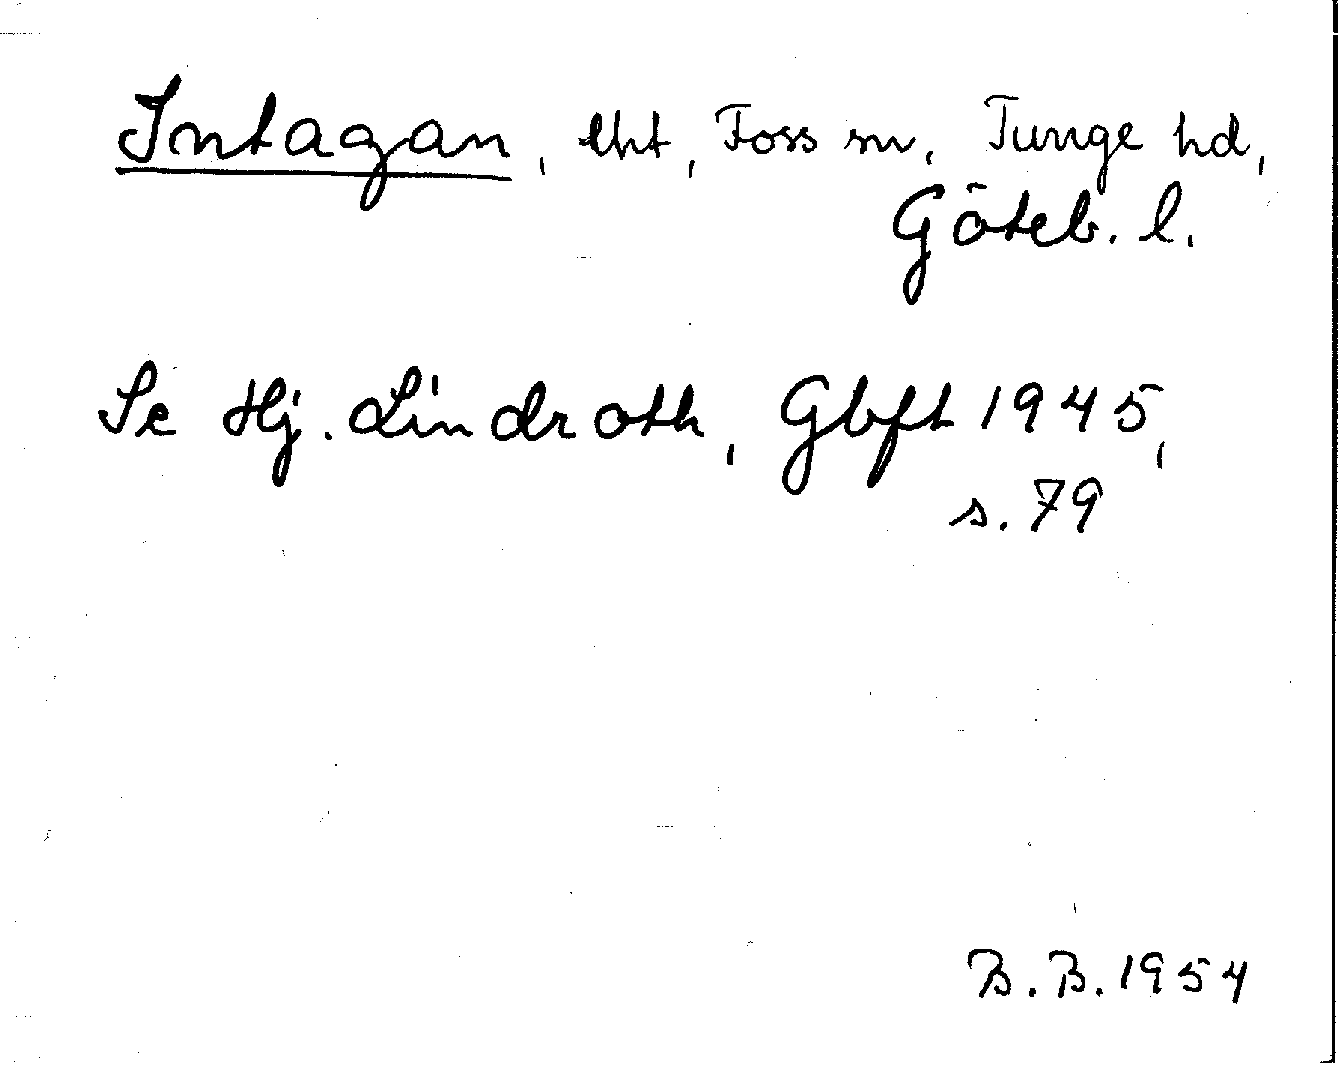 Intagan, lht, Foss sn, Tunge hd,
Göteb. l.
Se Hj. Lindroth, Gbft 1945,
s. 79
B.B. 1954